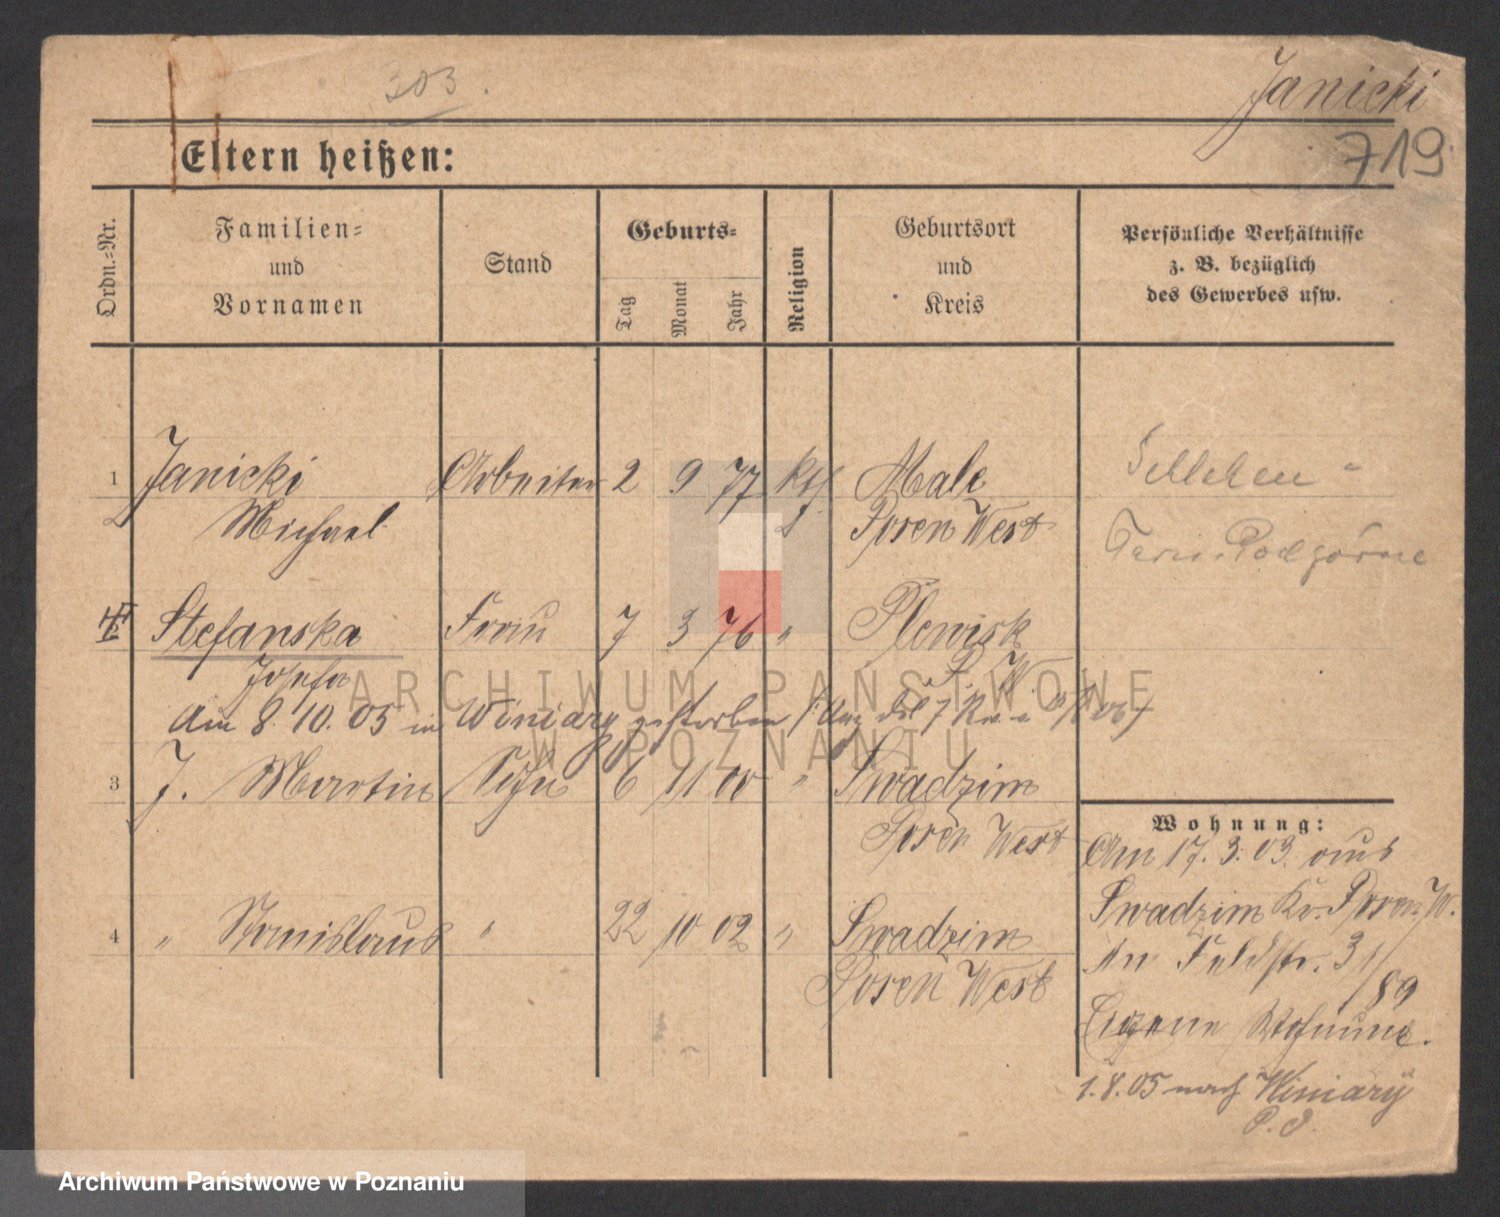 303.
Janicki
719
Eltern heißen:
Ordn.-Nr.
Familien-
und
Vornamen
Stand
Geburts-
Tag
Monat
Jahr
Religion
Geburtsort
und
Kreis
Persönliche Verhältnisse
z. B. bezüglich
des Gewerbes usw.
1 Janicki Arbeiter 2 9 77 kth Male
Michael Posen West
Podgórne
Stefanska Frau 7 3 76 " Plewisk
Josefa P. W
Am 8. 10. 05 in Winiary gestorben
3 J. Martin Sohn 6 11 00 " Swadzim
Posen West
4 " Stanislaus " 22 10 02 " Swadzim
Posen West
Wohnung:
Am 17. 3. 03. aus
Swadzim Kr. Posen W.
Feldstr. 31/89
Eigene Wohnung.
1. 8. 05 nach Winiary
P. O.
ARCHIWUM PAŃSTWOWE
W POZNANIU
Archiwum Państwowe w Poznaniu